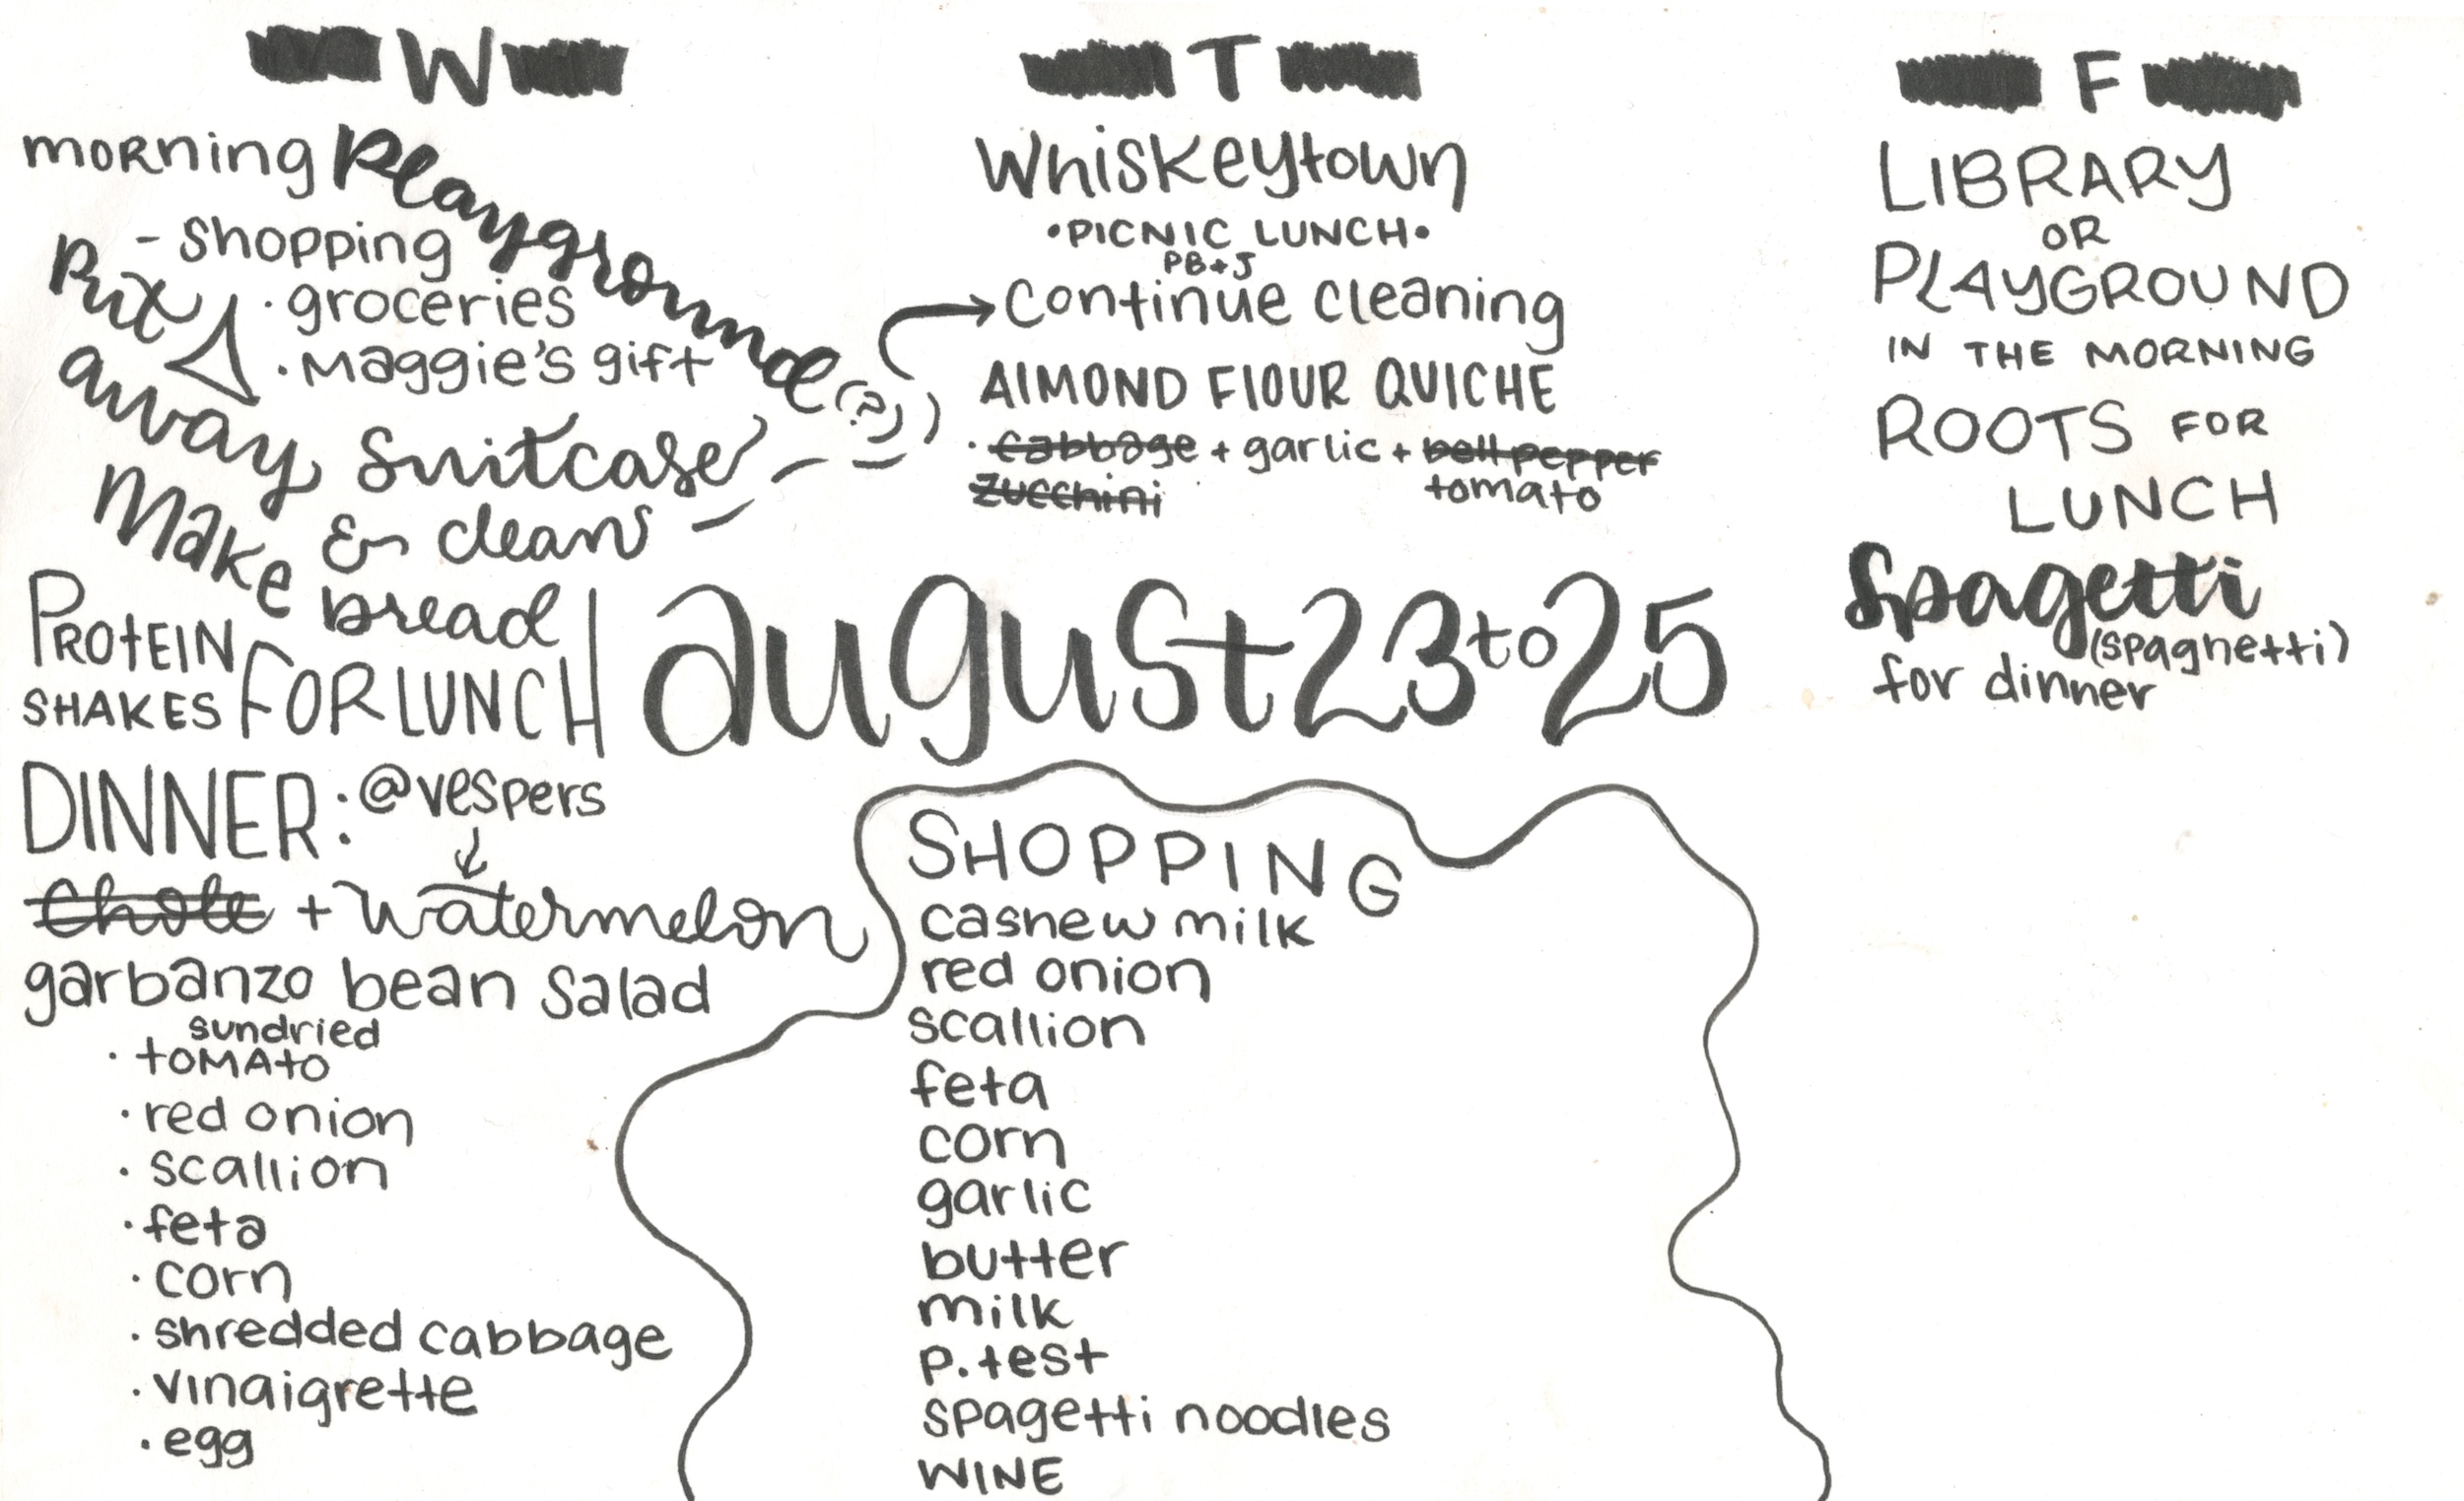 W
morning playground (?)
- shopping
· groceries
· Maggie's gift
Put away suitcase
& clean
Make bread
PROTEIN
SHAKES FOR LUNCH
DINNER: @vespers
Chole + watermelon
garbanzo bean salad
sundried
· tOMAtO
· red onion
· scallion
· feta
· corn
· shredded cabbage
· vinaigrette
· egg
T
Whiskeytown
•PICNIC LUNCH•
PB+J
Continue cleaning
AlMOND FlOUR QUICHE
· cabbage + garlic + bell pepper
zucchini tomato
august 23 to 25
SHOPPING
cashew milk
red onion
scallion
feta
corn
garlic
butter
milk
p. test
spagetti noodles
WINE
F
LIBRARY
OR
PLAYGROUND
IN THE MORNING
ROOTS FOR
LUNCH
Spagetti
(spaghetti)
for dinner